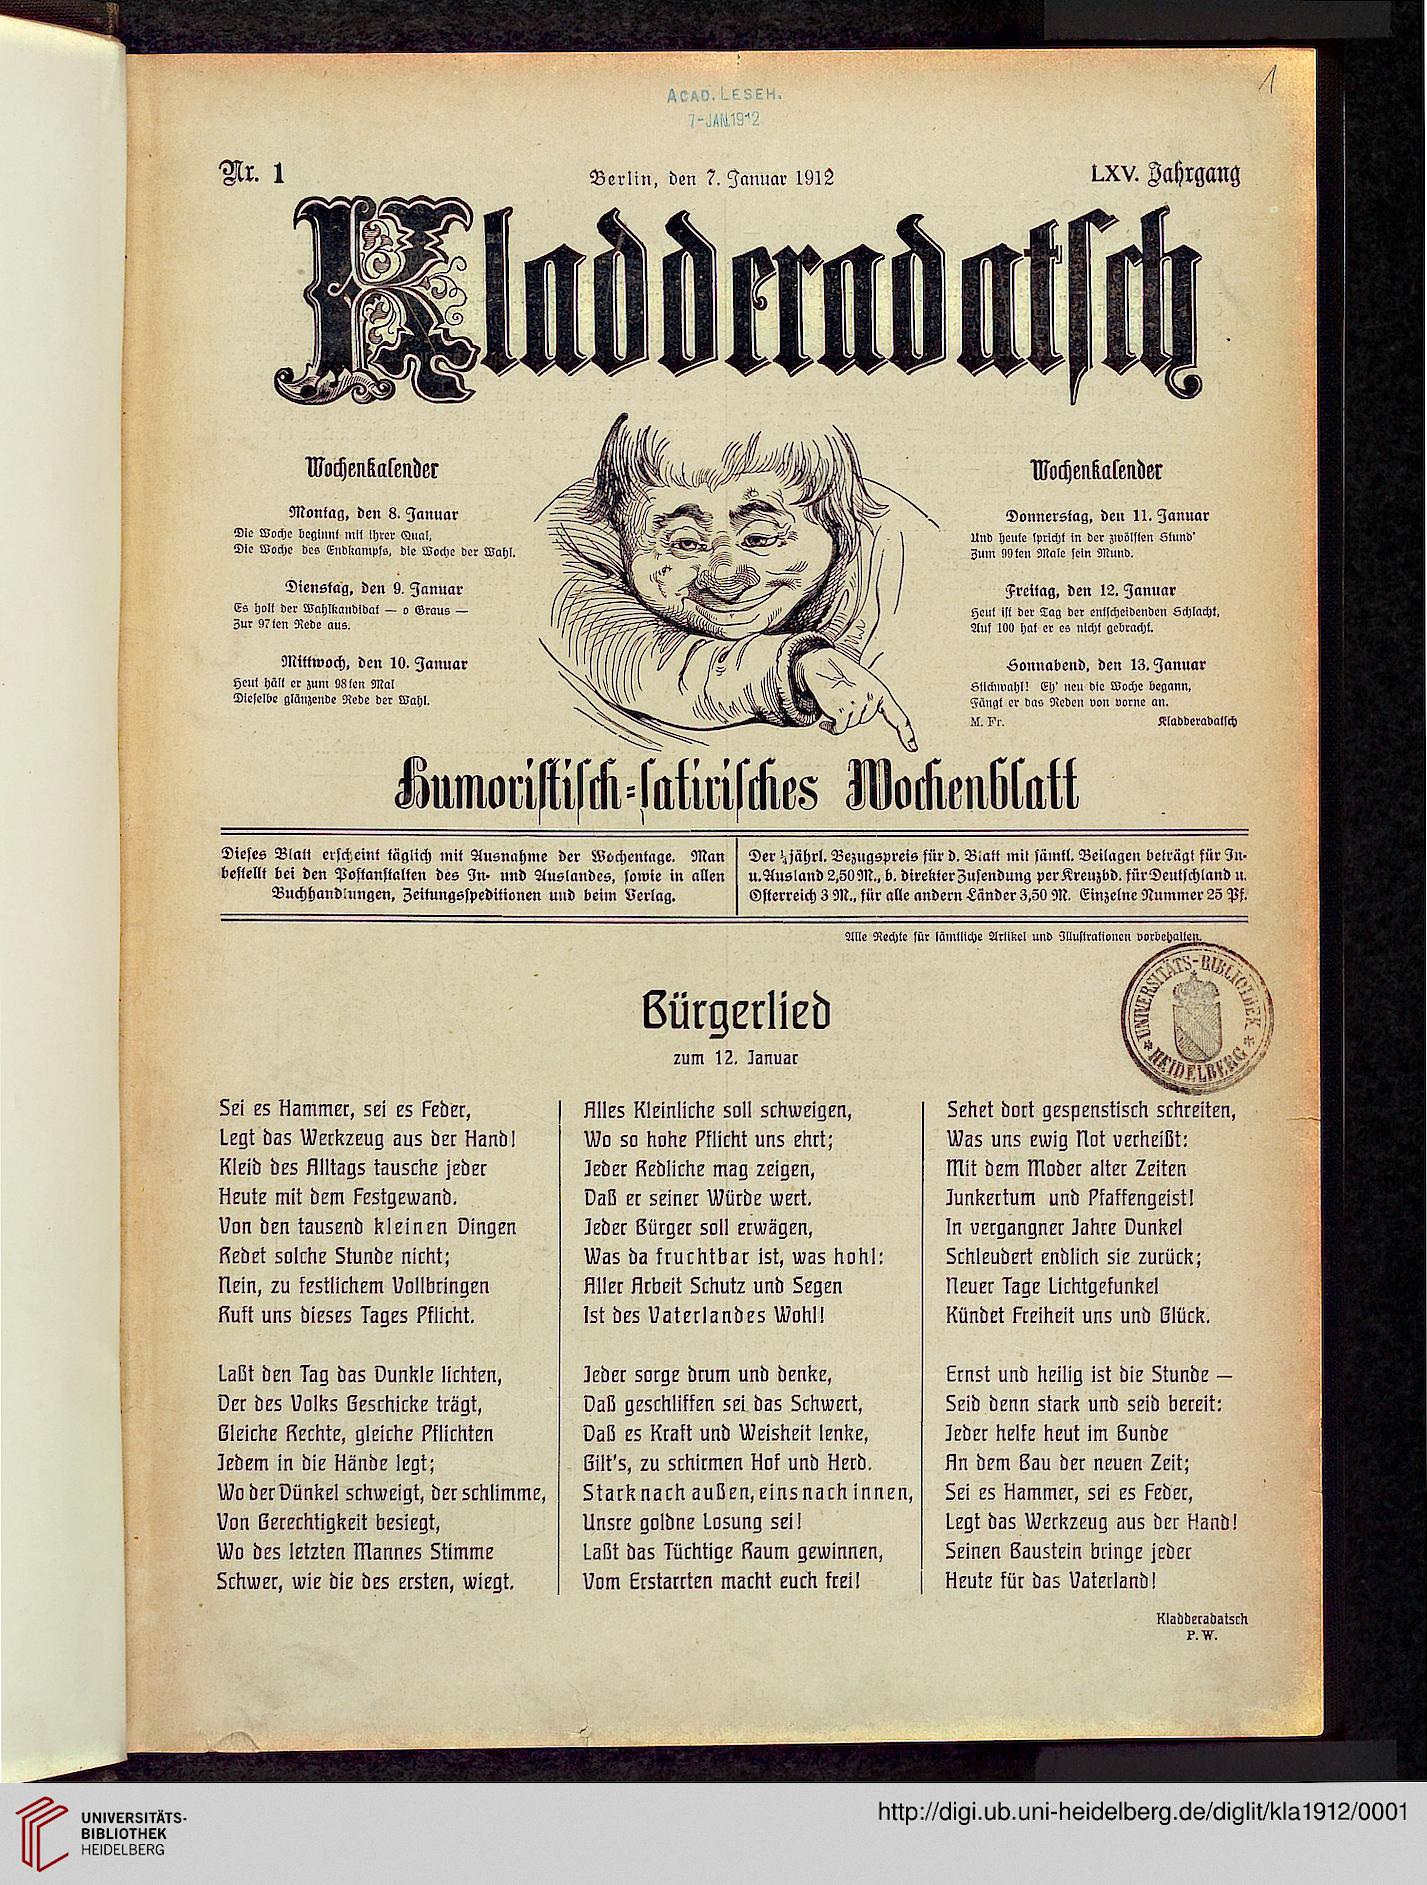 ACAD. LESEH.
7-JAN.1912
1
Nr. 1
Berlin, den 7. Januar 1912
LXV. Jahrgang
Kladderadatsch
Wochenkalender
Montag, den 8. Januar
Die Woche beginnt mit ihrer Qual,
Die Woche des Endkampfs, die Woche der Wahl.
Dienstag, den 9. Januar
Es holt der Wahlkandidat — o Graus —
Zur 97ten Rede aus.
Mittwoch, den 10. Januar
Heut hält er zum 98ten Mal
Dieselbe glänzende Rede der Wahl.
Wochenkalender
Donnerstag, den 11. Januar
Und heute spricht in der zwölften Stund'
Zum 99ten Male sein Mund.
Freitag, den 12. Januar
Heut ist der Tag der entscheidenden Schlacht,
Auf 100 hat er es nicht gebracht.
Sonnabend, den 13. Januar
Stichwahl! Eh' neu die Woche begann,
Fängt er das Reden von vorne an.
M. Fr. Kladderadatsch
Humoristisch-satirisches Wochenblatt
Dieses Blatt erscheint täglich mit Ausnahme der Wochentage. Man
bestellt bei den Postanstalten des In- und Auslandes, sowie in allen
Buchhandlungen, Zeitungsspeditionen und beim Verlag.
Der ¼jährl. Bezugspreis für d. Blatt mit sämtl. Beilagen beträgt für In-
u. Ausland 2,50 M., b. direkter Zusendung per Kreuzbd. für Deutschland u.
Österreich 3 M., für alle andern Länder 3,50 M. Einzelne Nummer 25 Pf.
Alle Rechte für sämtliche Artikel und Illustrationen vorbehalten.
UNIVERSITÄTS-BIBLIOTHEK
* HEIDELBERG *
Bürgerlied
zum 12. Januar
Sei es Hammer, sei es Feder,
Legt das Werkzeug aus der Hand!
Kleid des Alltags tausche jeder
Heute mit dem Festgewand.
Von den tausend kleinen Dingen
Redet solche Stunde nicht;
Nein, zu festlichem Vollbringen
Ruft uns dieses Tages Pflicht.
Laßt den Tag das Dunkle lichten,
Der des Volks Geschicke trägt,
Gleiche Rechte, gleiche Pflichten
Jedem in die Hände legt;
Wo der Dünkel schweigt, der schlimme,
Von Gerechtigkeit besiegt,
Wo des letzten Mannes Stimme
Schwer, wie die des ersten, wiegt.
Alles Kleinliche soll schweigen,
Wo so hohe Pflicht uns ehrt;
Jeder Redliche mag zeigen,
Daß er seiner Würde wert.
Jeder Bürger soll erwägen,
Was da fruchtbar ist, was hohl:
Aller Arbeit Schutz und Segen
Ist des Vaterlandes Wohl!
Jeder sorge drum und denke,
Daß geschliffen sei das Schwert,
Daß es Kraft und Weisheit lenke,
Gilt's, zu schirmen Hof und Herd.
Stark nach außen, eins nach innen,
Unsre goldne Losung sei!
Laßt das Tüchtige Raum gewinnen,
Vom Erstarrten macht euch frei!
Sehet dort gespenstisch schreiten,
Was uns ewig Not verheißt:
Mit dem Moder alter Zeiten
Junkertum und Pfaffengeist!
In vergangner Jahre Dunkel
Schleudert endlich sie zurück;
Neuer Tage Lichtgefunkel
Kündet Freiheit uns und Glück.
Ernst und heilig ist die Stunde —
Seid denn stark und seid bereit:
Jeder helfe heut im Bunde
An dem Bau der neuen Zeit;
Sei es Hammer, sei es Feder,
Legt das Werkzeug aus der Hand!
Seinen Baustein bringe jeder
Heute für das Vaterland!
Kladderadatsch
P. W.
UNIVERSITÄTS-
BIBLIOTHEK
HEIDELBERG
http://digi.ub.uni-heidelberg.de/diglit/kla1912/0001